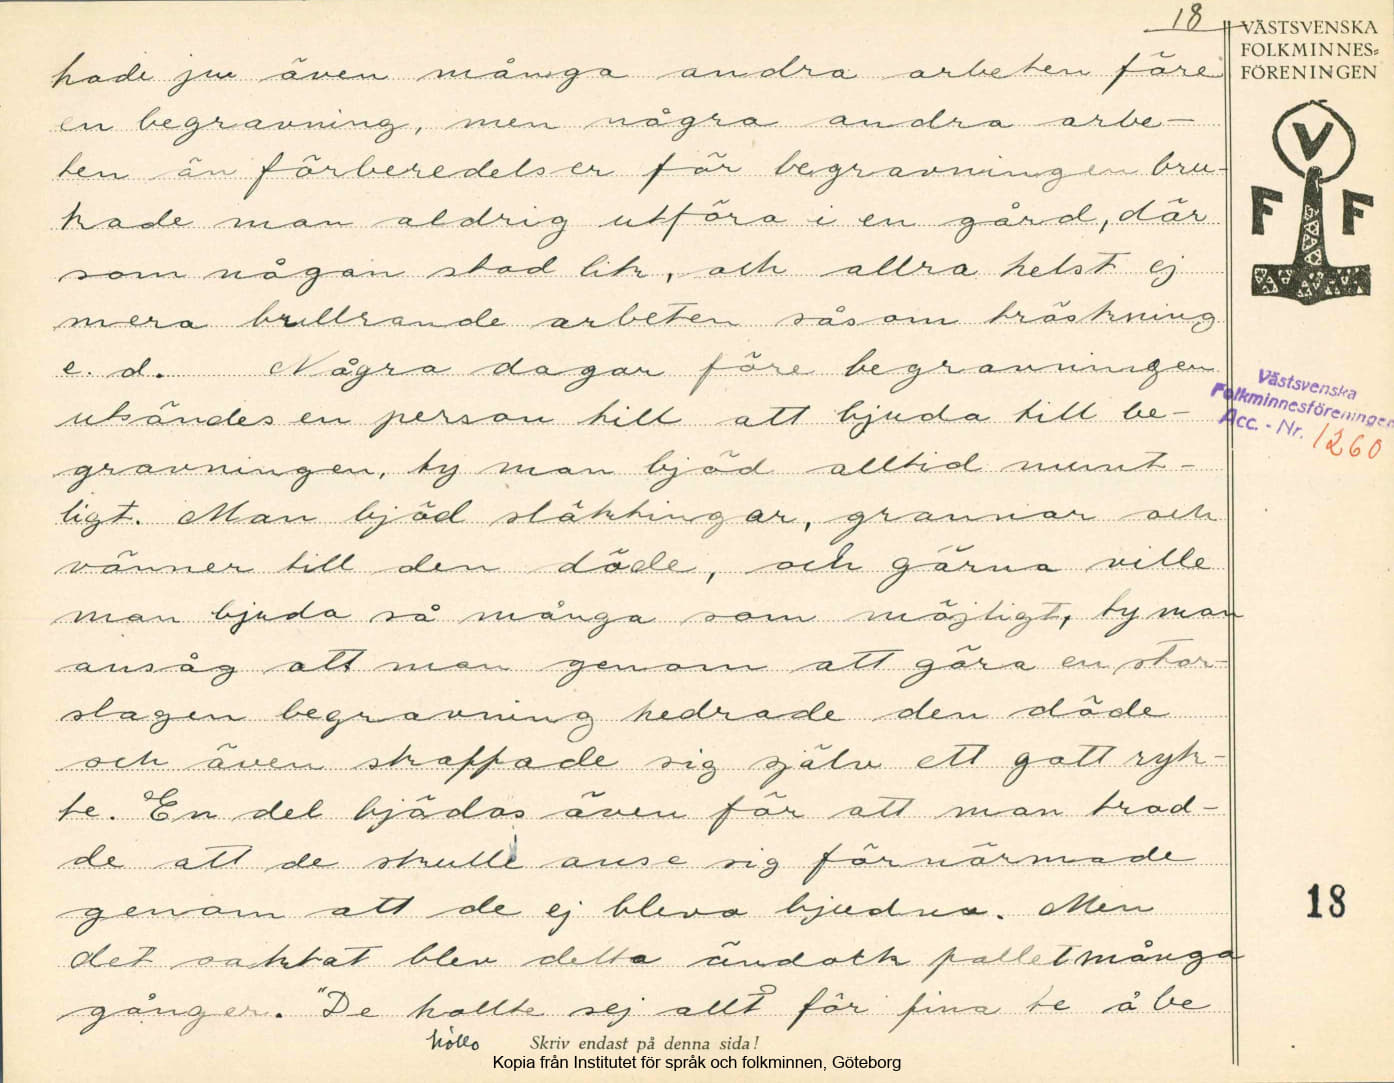 18
VÄSTSVENSKA
FOLKMINNES=
FÖRENINGEN
V
F F
hade ju även många andra arbeten före
en begravning, men några andra arbe-
ten än förberedelser för begravningen bru-
kade man aldrig utföra i en gård, där
som någon stod lik, och allra helst ej
mera bullrande arbeten såsom tröskning
e. d. Några dagar före begravningen
utsändes en person till att bjuda till be-
gravningen, ty man bjöd alltid munt-
ligt. Man bjöd släktingar, grannar och
vänner till den döde, och gärna ville
man bjuda så många som möjligt, ty man
ansåg att man genom att göra en stor-
slagen begravning hedrade den döde
och även skaffade sig själv ett gott ryk-
te. En del bjödos även för att man trod-
de att de skulle anse sig förnärmade
genom att de ej bleva bjudna. Men
det oaktat blev detta ändock fallet många
gånger. "De hollte sej allt för fina te å be
hollo
Västsvenska
Folkminnesföreningen
Acc. - Nr. 1260
18
Skriv endast på denna sida!
Kopia från Institutet för språk och folkminnen, Göteborg